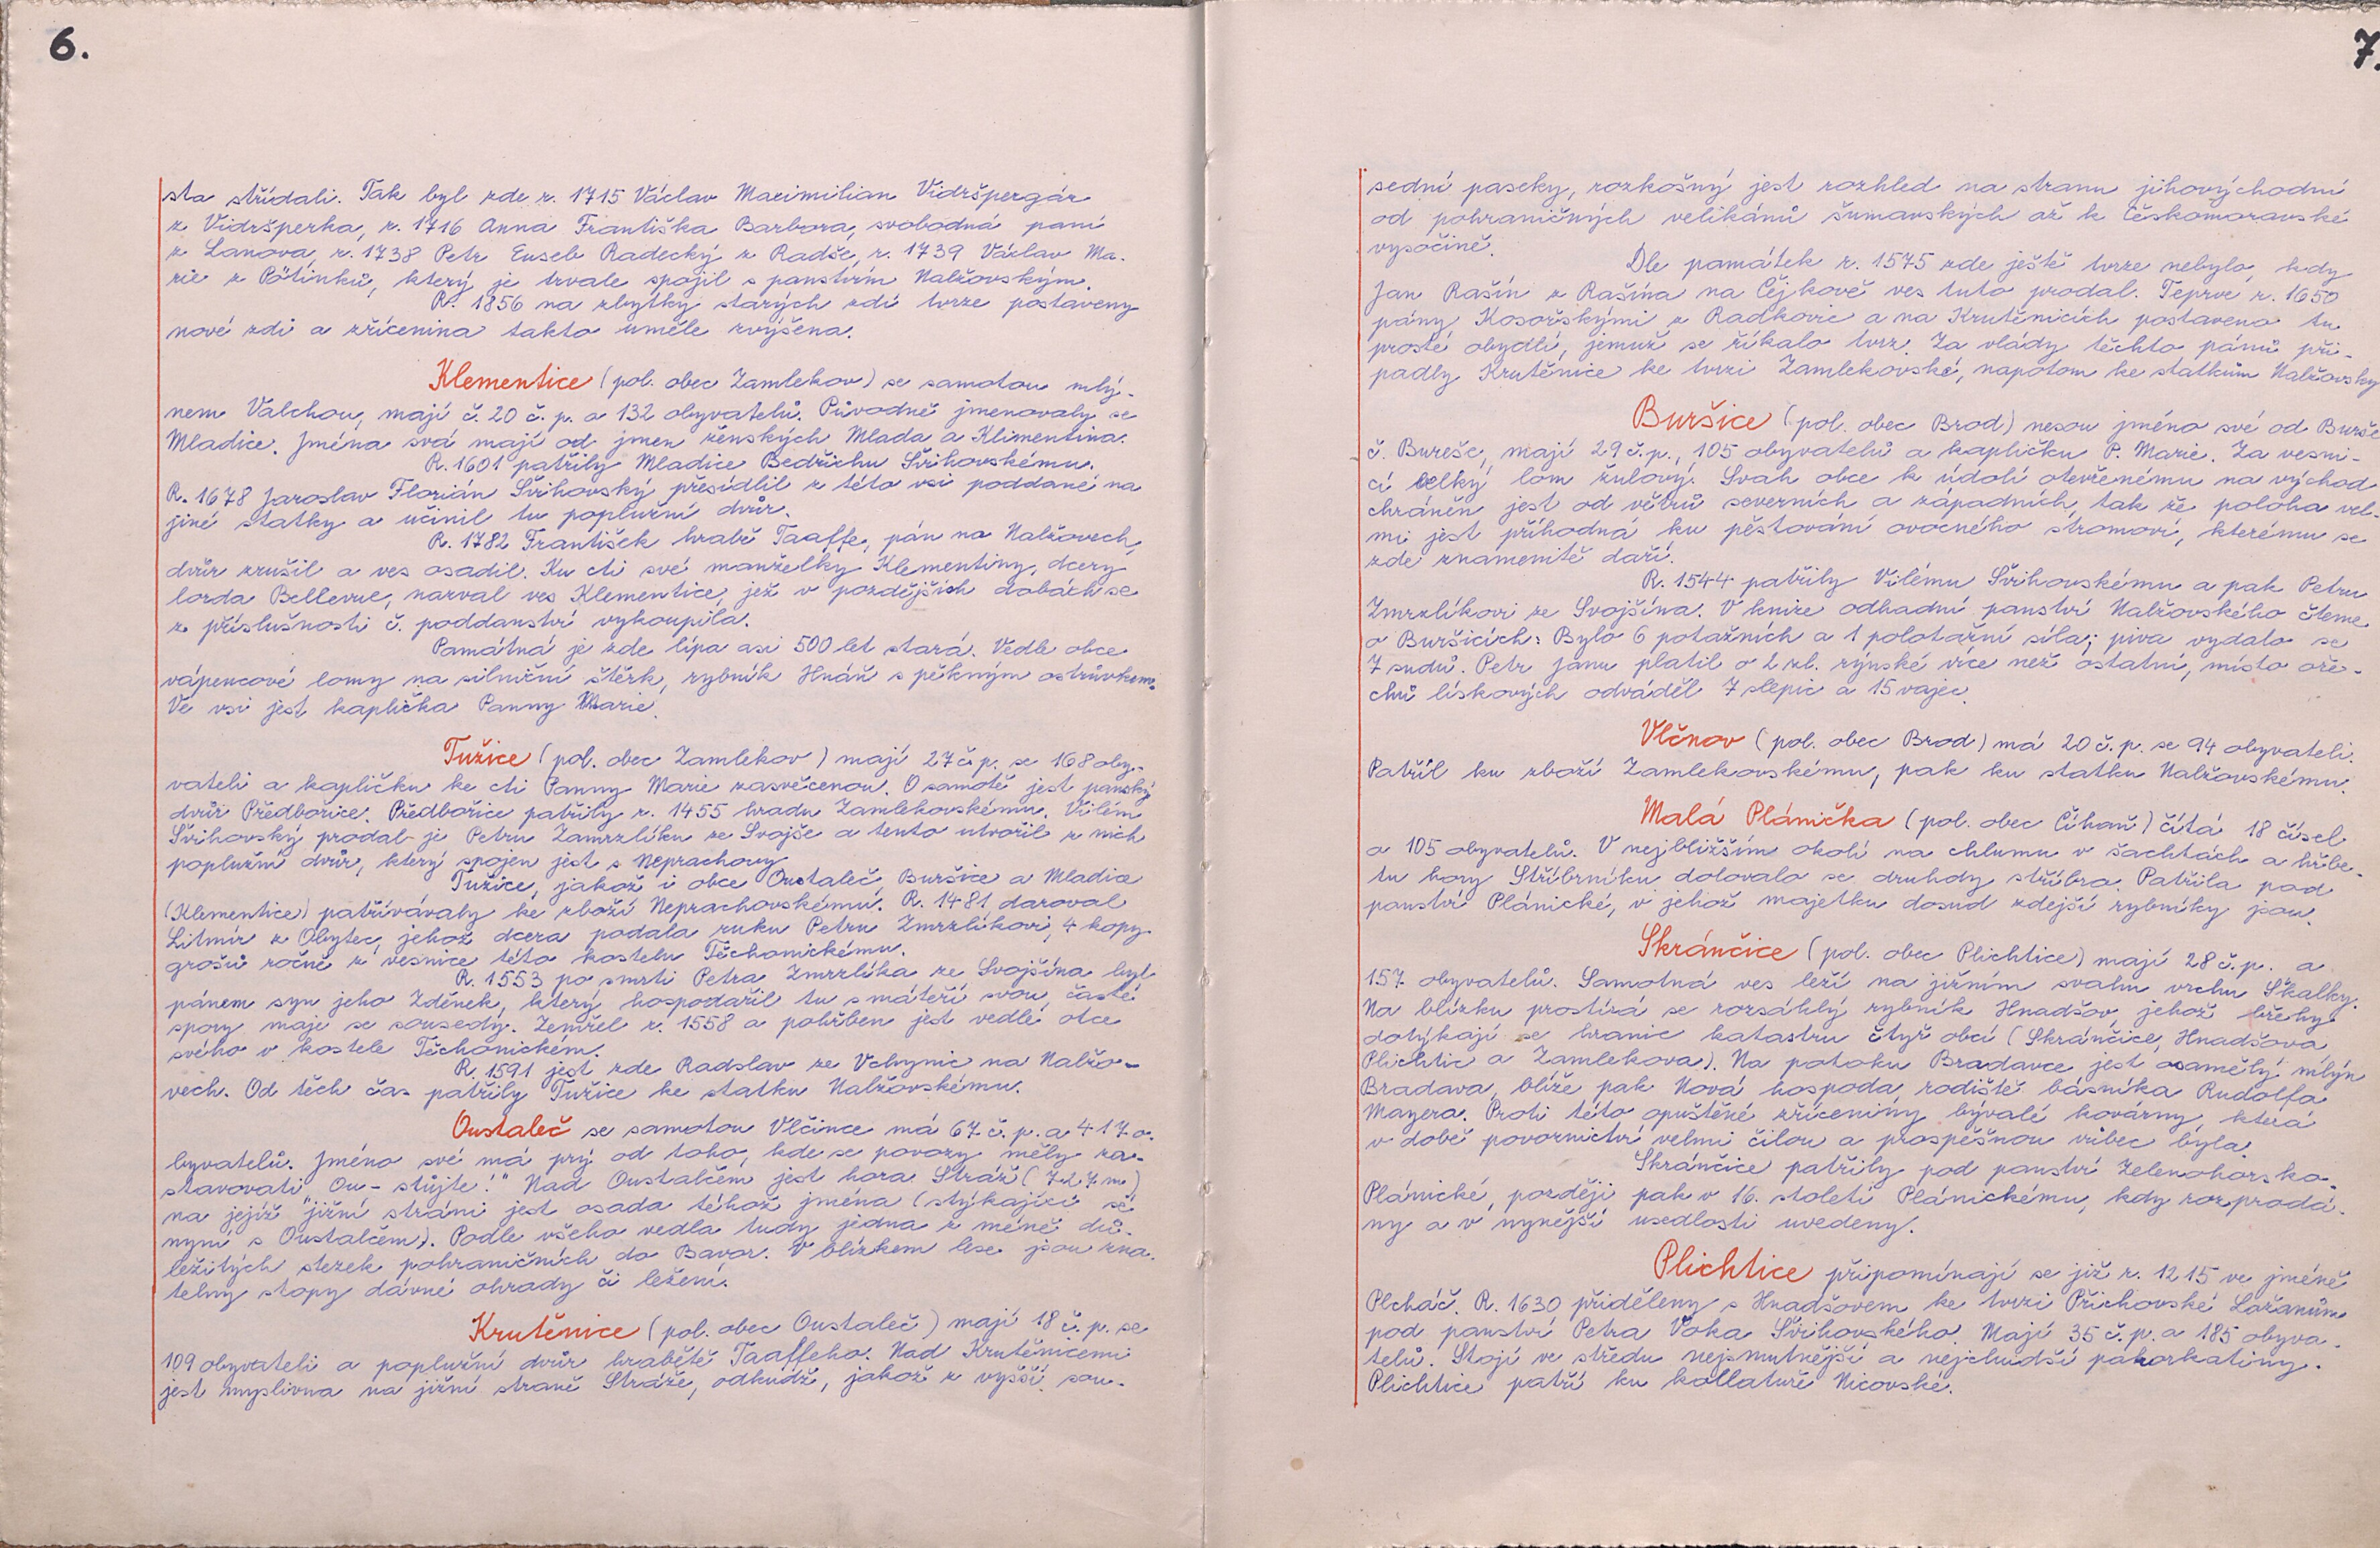 6.
sta střídali. Tak byl zde r. 1715 Václav Maximilian Vidršpergár
z Vidršperka, r. 1716 Anna Františka Barbora, svobodná paní
z Lanova, r. 1738 Petr Euseb Radecký z Radše, r. 1739 Václav Ma-
rie z Pötinků, který je trvale spojil s panstvím Nalžovským.
R. 1856 na zbytky starých zdí tvrze postaveny
nové zdi a zřícenina takto uměle zvýšena.
Klementice (pol. obec Zamlekov) se samotou mlý-
nem Valchou, mají č. 20 č. p. a 132 obyvatelů. Původně jmenovaly se
Mladice. Jména svá mají od jmen ženských Mlada a Klimentina.
R. 1601 patřily Mladice Bedřichu Švihovskému.
R. 1678 Jaroslav Florián Švihovský přesídlil z této vsi poddané na
jiné statky a učinil tu poplužní dvůr.
R. 1782 František hrabě Taaffe, pán na Nalžovech,
dvůr zrušil a ves osadil. Ku cti své manželky Klementiny, dcery
lorda Bellevue, nazval ves Klementice, jež v pozdějších dobách se
z příslušnosti č. poddanství vykoupila.
Památná je zde lípa asi 500 let stará. Vedle obce
vápencové lomy na silniční štěrk, rybník Hnáň s pěkným ostrůvkem.
Ve vsi jest kaplička Panny Marie.
Tužice (pol. obec Zamlekov) mají 27 č. p. se 168 oby-
vateli a kapličku ke cti Panny Marie zasvěcenou. O samotě jest panský
dvůr Předbořice. Předbořice patřily r. 1455 hradu Zamlekovskému. Vilém
Švihovský prodal je Petru Zamrzlíku ze Svojše a tento utvořil z nich
poplužní dvůr, který spojen jest s Neprachovy.
Tužice, jakož i obce Oustaleč, Buršice a Mladice
(Klementice) patřívávaly ke zboží Neprachovskému. R. 1481 daroval
Litmír z Obytec, jehož dcera podala ruku Petru Zmrzlíkovi, 4 kopy
grošů ročně z vesnice této kostelu Těchonickému.
R. 1553 po smrti Petra Zmrzlíka ze Svojšína byl
pánem syn jeho Zděnek, který hospodařil tu s mateří svou, časté
spory maje se sousedy. Zemřel r. 1558 a pohřben jest vedle otce
svého v kostele Těchonickém.
R. 1591 jest zde Radslav ze Vchynic na Nalžo-
vech. Od těch čas patřily Tužice ke statku Nalžovskému.
Oustaleč se samotou Vlčince má 67 č. p. a 417 o-
byvatelů. Jméno své má prý od toho, kde se povozy měly za-
stavovati "Ou-stůjte!" Nad Oustalčem jest hora Stráž (727 m)
na jejíž jižní stráni jest osada téhož jména (stýkající se
nyní s Oustalčem). Podle všeho vedla tudy jedna z méně dů-
ležitých stezek pohraničních do Bavor. V blízkem lese jsou zna-
telny stopy dávné ohrady či ležení.
Krutěnice (pol. obec Oustaleč) mají 18 č. p. se
109 obyvateli a poplužní dvůr hraběte Taaffeho. Nad Krutěnicemi
jest myslivna na jižní straně Stráže, odkudž, jakož z vyšší sou-
7.
sední paseky, rozkošný jest rozhled na stranu jihovýchodní
od pohraničných velikánů šumavských až k českomoravské
vysočině.
Dle památek r. 1575 zde ještě tvrze nebylo, kdy
Jan Rašín z Rašína na Čejkově ves tuto prodal. Teprve r. 1650
pány Kosořskými z Radkovic a na Krutěnicích postaveno tu
prosté obydlí, jemuž se říkalo tvrz. Za vlády těchto pánů při-
padly Krutěnice ke tvrzi Zamlekovské, napotom ke statkům Nalžovsky
Buršice (pol. obec Brod) nesou jméno své od Burše
č. Bureše, mají 29 č. p., 105 obyvatelů a kapličku P. Marie. Za vesni-
cí velký lom žulový. Svah obce k údolí otevřenému na východ
chráněn jest od větrů severních a západních, tak že poloha vel-
mi jest příhodná ku pěstování ovocného stromoví, kterému se
zde znamenitě daří.
R. 1544 patřily Vilému Švihovskému a pak Petru
Zmrzlíkovi ze Svojšína. V knize odhadní panství Nalžovského čteme
o Buršicích: Bylo 6 potažních a 1 polotažní síla; piva vydalo se
7 sudů. Petr Janu platil o 2 zl. rýnské více než ostatní, místo oře-
chů lískových odváděl 7 slepic a 15 vajec.
Vlčnov (pol. obec Brod) má 20 č. p. se 94 obyvateli.
Patřil ku zboží Zamlekovskému, pak ku statku Nalžovskému.
Malá Plánička (pol. obec Číhaň) čítá 18 čísel
a 105 obyvatelů. V nejbližším okolí na chlumu v šachtách a hřbe-
tu hory Stříbrníku dolovalo se druhdy stříbro. Patřila pod
panství Plánické, v jehož majetku dosud zdejší rybníky jsou.
Skránčice (pol. obec Plichtice) mají 28 č. p. a
157 obyvatelů. Samotná ves leží na jižním svahu vrchu Skalky.
Na blízku prostírá se rozsáhlý rybník Hnadšov, jehož břehy
dotýkají se hranic katastru čtyř obcí (Skránčice, Hnadšova
Plichtic a Zamlekova). Na potoku Bradavce jest osamělý mlýn
Bradava, blíže pak Nová hospoda, rodiště básníka Rudolfa
Mayera. Proti této opuštěné zříceniny bývalé kovárny, která
v době povoznictví velmi čilou a prospěšnou vůbec byla.
Skránčice patřily pod panství Zelenohorsko-
Plánické, později pak v 16. století Plánickému, kdy rozprodá-
ny a v nynější usedlosti uvedeny.
Plichtice připomínají se již r. 1215 ve jméně
Plcháč. R. 1630 přiděleny s Hnadšovem ke tvrzi Přichovské Lažanům
pod panství Petra Voka Švihovského. Mají 35 č. p. a 185 obyva-
telů. Stojí ve středu nejsmutnější a nejchudší pahorkatiny.
Plichtice patří ku kollatuře Nicovské.